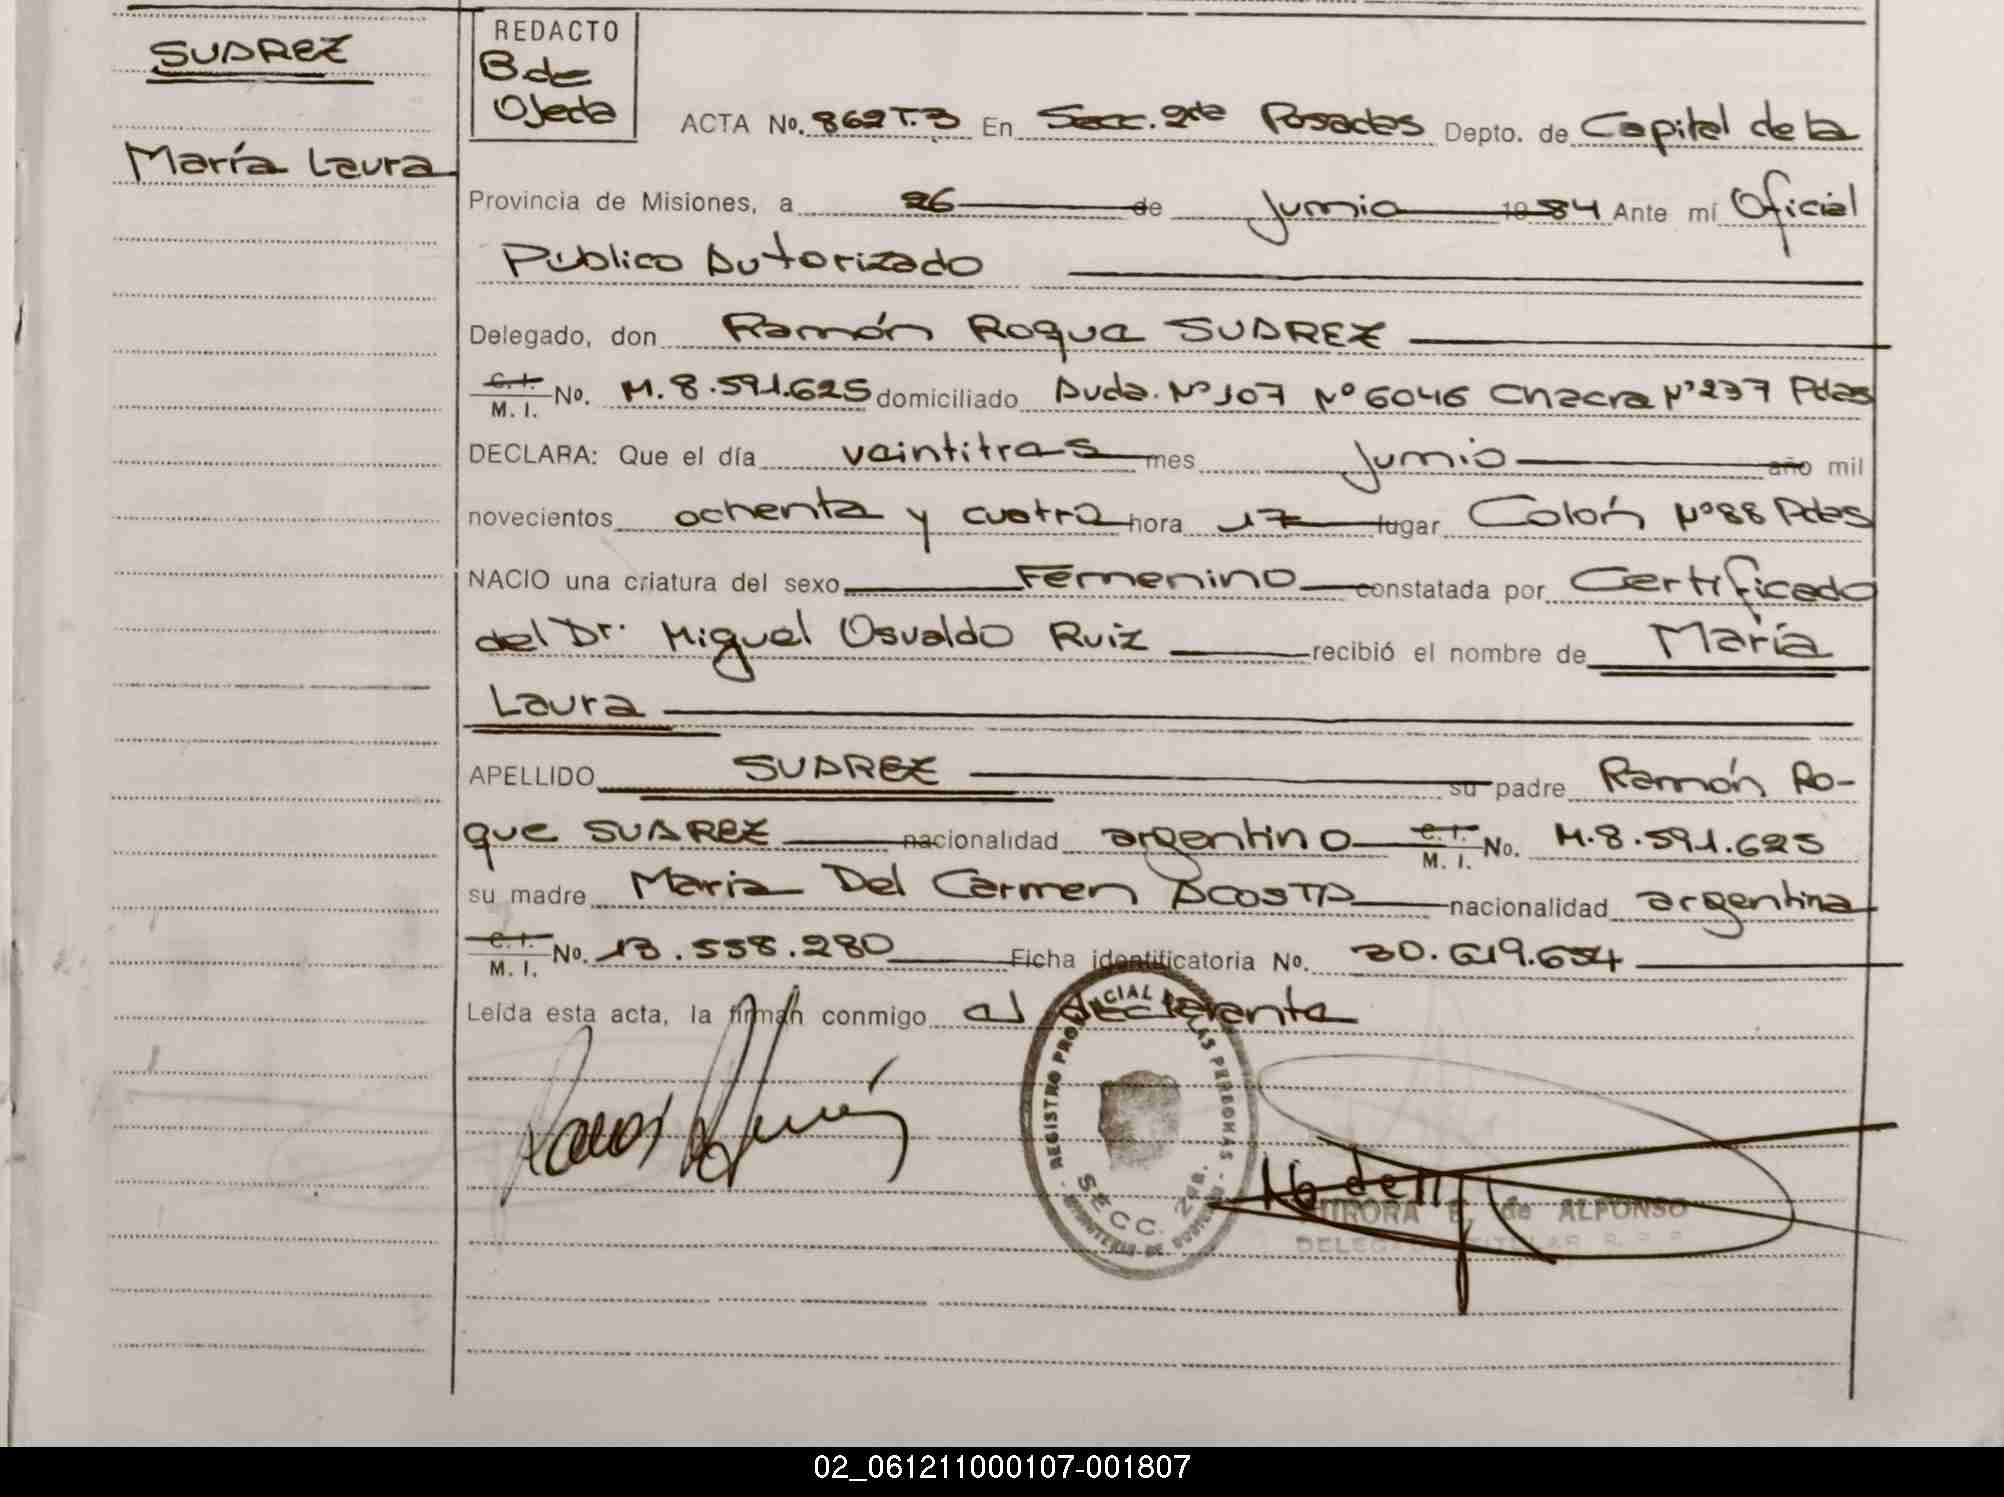 SUAREZ
María Laura
REDACTO
B. de
Ojeda
ACTA No. 862 T.3 En Secc. 2da Posadas Depto. de Capital de la
Provincia de Misiones, a 26 de Junio 1984 Ante mí Oficial
Público Autorizado
Delegado, don Ramón Roque SUAREZ
C.I. M. I. No. M. 8.591.625 domiciliado Avda. Nº 107 Nº 6046 Chacra Nº 237 Pdas
DECLARA: Que el día veintitres mes Junio año mil
novecientos ochenta y cuatro hora 17 lugar Colón Nº 88 Pdas
NACIO una criatura del sexo Femenino constatada por Certificado
del Dr. Miguel Osvaldo Ruiz recibió el nombre de María
Laura
APELLIDO SUAREZ su padre Ramón Ro-
que SUAREZ nacionalidad argentino C.I. M. I. No. M. 8.591.625
su madre Maria Del Carmen ACOSTA nacionalidad argentina
C.I. M. I. No. 13.558.280 Ficha identificatoria No. 30.619.654
Leída esta acta, la firman conmigo el declarante
REGISTRO PROVINCIAL DE LAS PERSONAS
SECC. 2da.
AURORA E. de ALFONSO
DELEGADA TITULAR R.P.P.
02_061211000107-001807